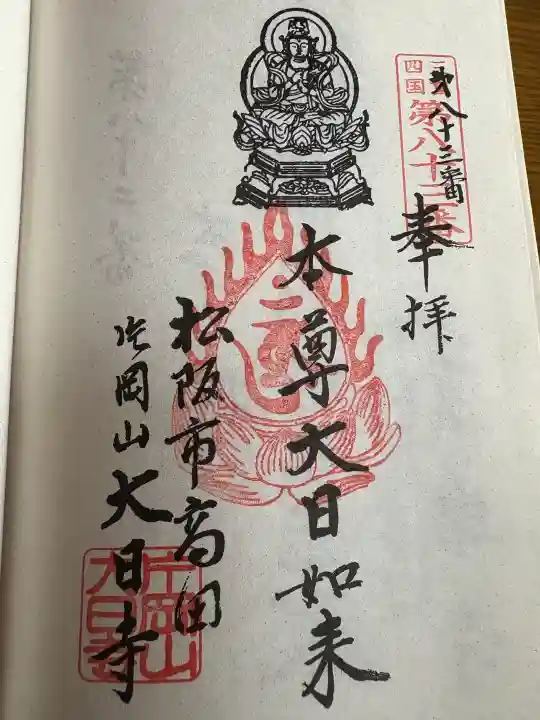 四国
第八十三番
第八十三番
奉拝
本尊大日如来
松阪市高田
片岡山大日寺
片岡山
大日寺